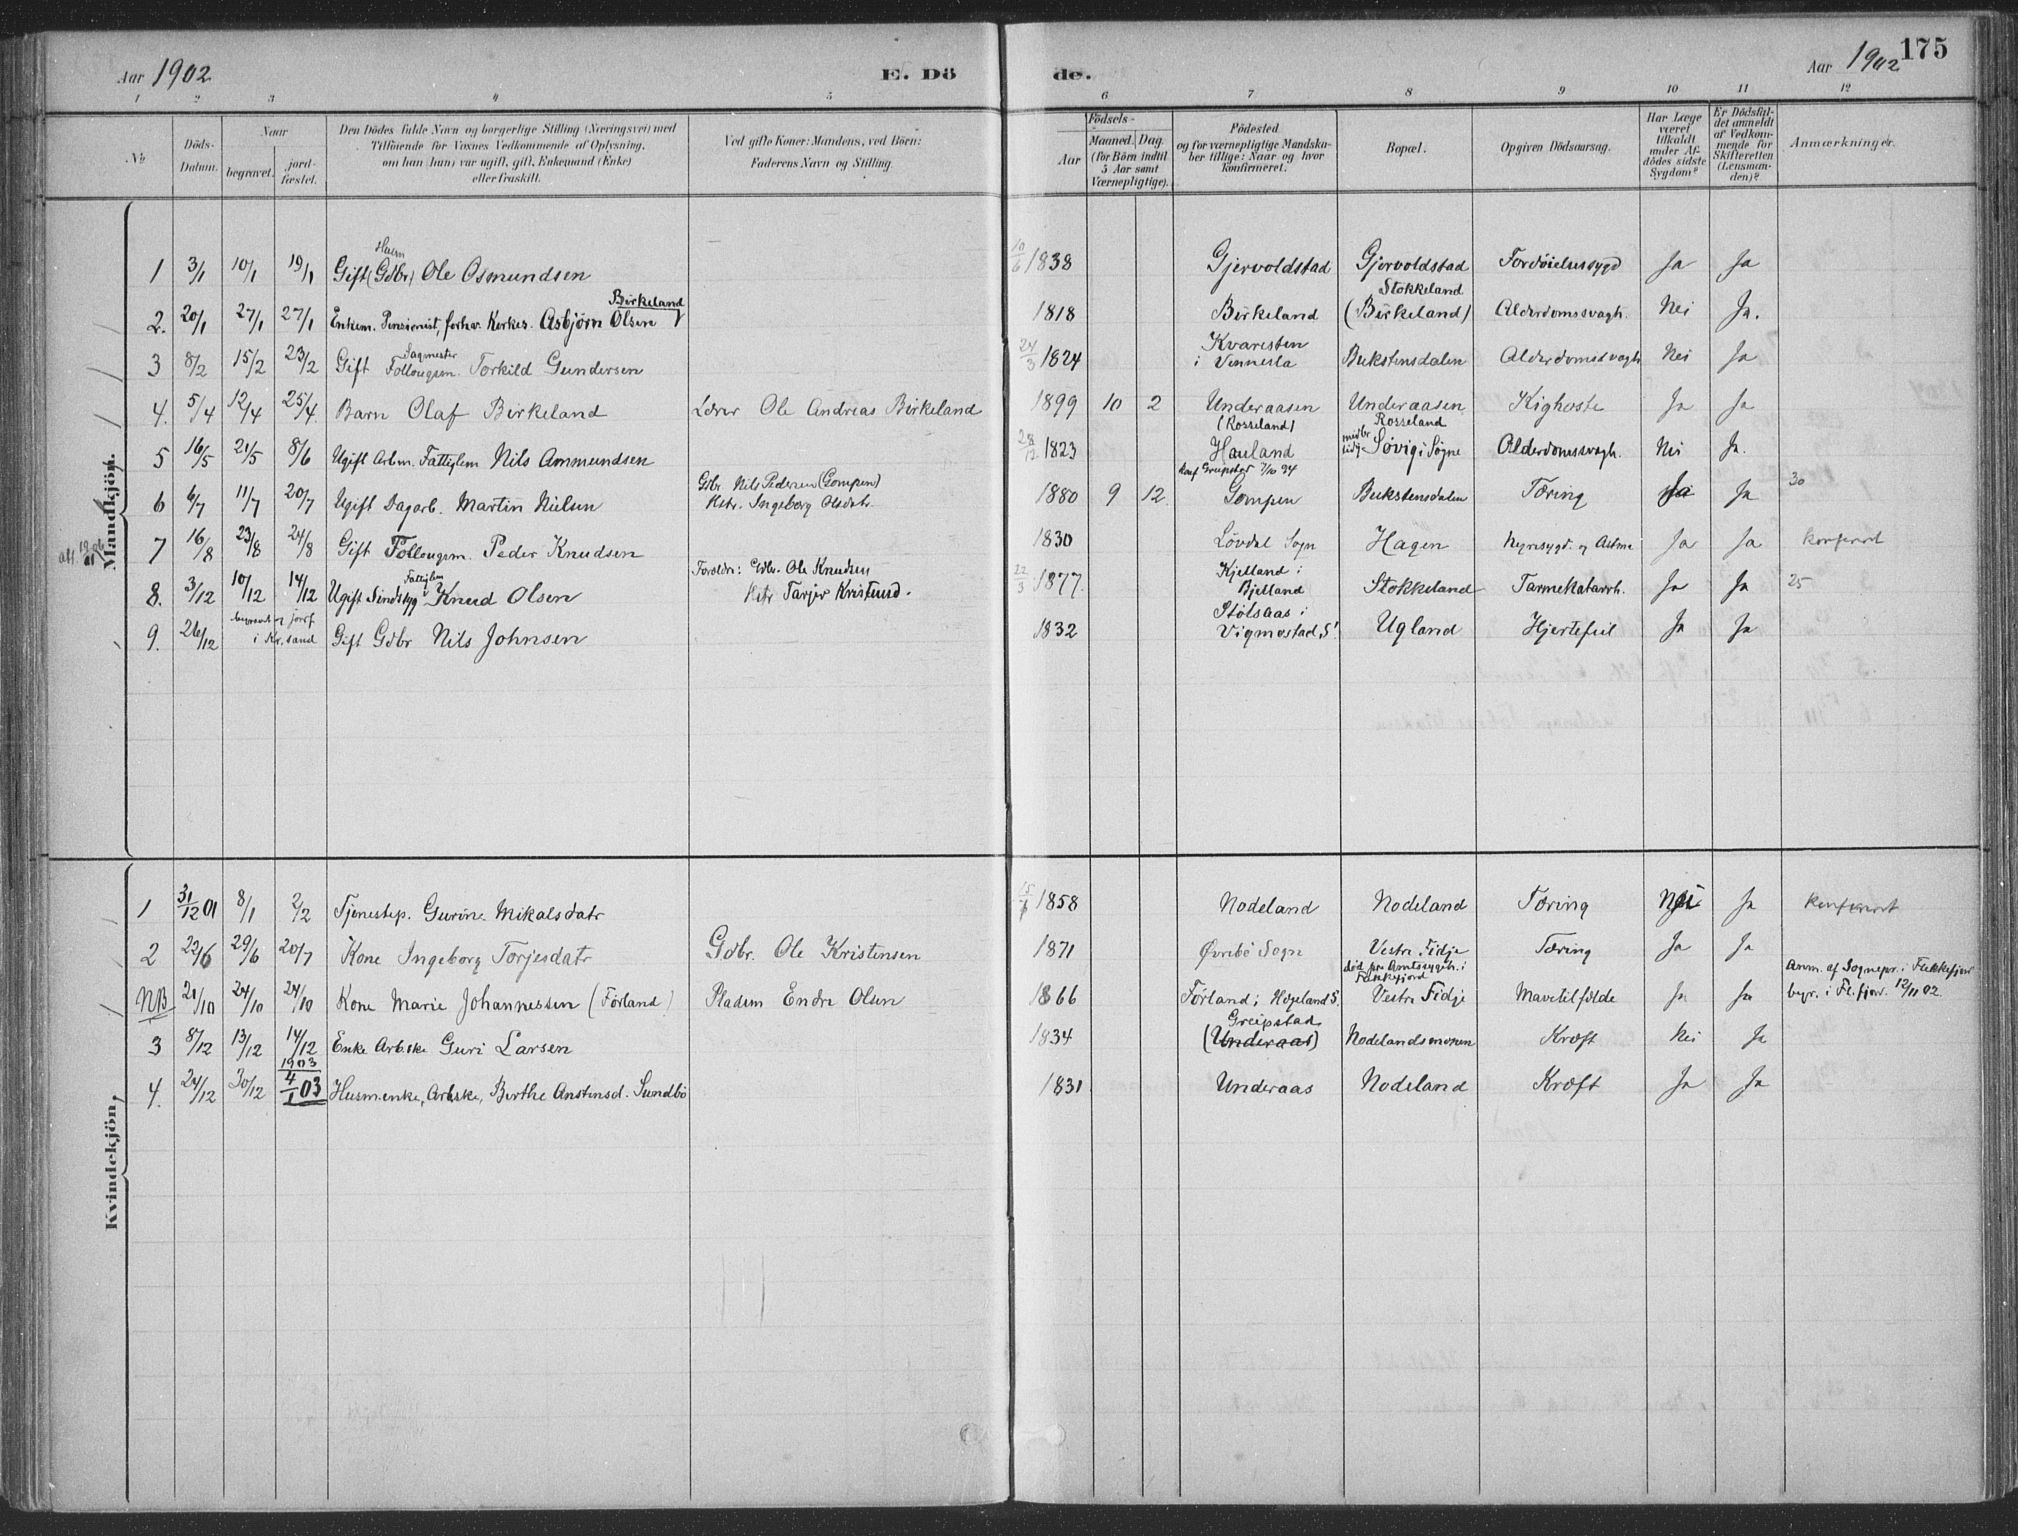 Aar 1902 E. Dö de. Aar 1902 175
1 2 3 4 5 6 7 8 9 10 11 12
No Döds-Datum. Naar begravet. jord-fæstet. Den Dödes fulde Navn og borgerlige Stilling (Næringsvei) med Tilföiende for Voxnes Vedkommende af Oplysning, om han (hun) var ugift, gift, Enkemand (Enke) eller fraskilt. Ved gifte Koner: Mandens, ved Börn: Faderens Navn og Stilling. Födsels- Aar Maaned. Dag. (for Börn indtil 5 Aar samt Værnepligtige). Födested og for værnepligtige Mandskaber tillige: Naar og hvor konfirmeret. Bopæl. Opgiven Dödsaarsag. Har Læge været tilkaldt under Afdödes sidste Sygdom? Er Dödsfaldet anmeldt af Vedkommende for Skifteretten (Lensmanden)? Anmærkninger.
Mandkjön.
1 3/1 10/1 19/1 Gift (Gdbr) Husm Ole Osmundsen 10/6 1838 Gjervoldstad Gjervoldstad Fordøielsessygd Ja Ja
2. 20/1 27/1 27/1 Enkem. Pensionist, forhv. Kirkes. Asbjørn Olsen Birkeland 1818 Birkeland Stokkeland (Birkeland) Alderdomssvagh. Nei Ja.
3 8/2 15/2 23/2 Gift Sagmester Follougsm. Torkild Gundersen 24/3 1824 Kvaresten i Vennesla Bukstensdalen Alderdomssvagh Nei Ja
4. 5/4 12/4 25/4 Barn Olaf Birkeland Lærer Ole Andreas Birkeland 1899 10 2 Underaasen (Rosseland) Underaasen Rosseland Kighoste Ja Ja
5 16/5 21/5 8/6 Ugift Arbm. Fattiglem Nils Ammundsen 28/12 1823 Hauland Søvig i Søgne Alderdomssvagh. Nei Ja.
6 6/7 11/7 20/7 Ugift Dagarb. Martin Nielsen Gdbr Nils Pedersen (Gompen) Hstr. Ingeborg Olsdatr. 1880 9 12 konf Greipstad 7/10 94 Gompen Bukstensdalen Tæring Ja Ja 30
7 16/8 23/8 24/8 Gift Follougsm. Peder Knudsen 1830 Løvdal Sogn Hagen Nyresygd. og Astma Ja Ja konfereret
8. 3/12 10/12 14/12 Ugift Sindssyg Fattiglem Knud Olsen Foreldre: Gdbr. Ole Knudsen Hstr Tarjer Kristensd. 22/3 1877 Kjelland i Bjelland Stokkeland Tarmekatarrh. Ja Ja 25
9. 26/12 begravet og jordf i Kr.sand Gift Gdbr Nils Johnsen 1832 Stølsaas i Vigmostad S! Ugland Hjertefeil Ja Ja
Kvindekjön,
1 31/12 01 8/1 2/2 Tjenestep. Gurine Mikalsdatr 1858 Nodeland Nodeland Tæring Nei Ja konfereret
2 22/6 29/6 20/7 Kone Ingeborg Torjesdatr Gdbr. Ole Kristensen 1871 Øvrebø Sogn Vestre Fidje Tæring Ja Ja
NB 21/10 24/10 24/10 Kone Marie Johannessen (Förland) Pladsm Endre Olsen 1866 Förland i Hægeland S. død paa Amtssygeh. i Flekkefjord Vestre Fidje Mavetilfælde Ja Ja Anm. af Sognepr. i Flekkefjord begr. i Fl.fjord. 12/11 02.
3 8/12 13/12 14/12 Enke Arbske Guri Larsen 1834 Greipstad (Underaas) Nodelandsmoen Kræft Nei Ja
4. 24/12 30/12 1903 4/1 03 Husmenke, Arbske, Berthe Anstensd. Sundbö 1831 Underaas Nodeland Kræft Ja Ja